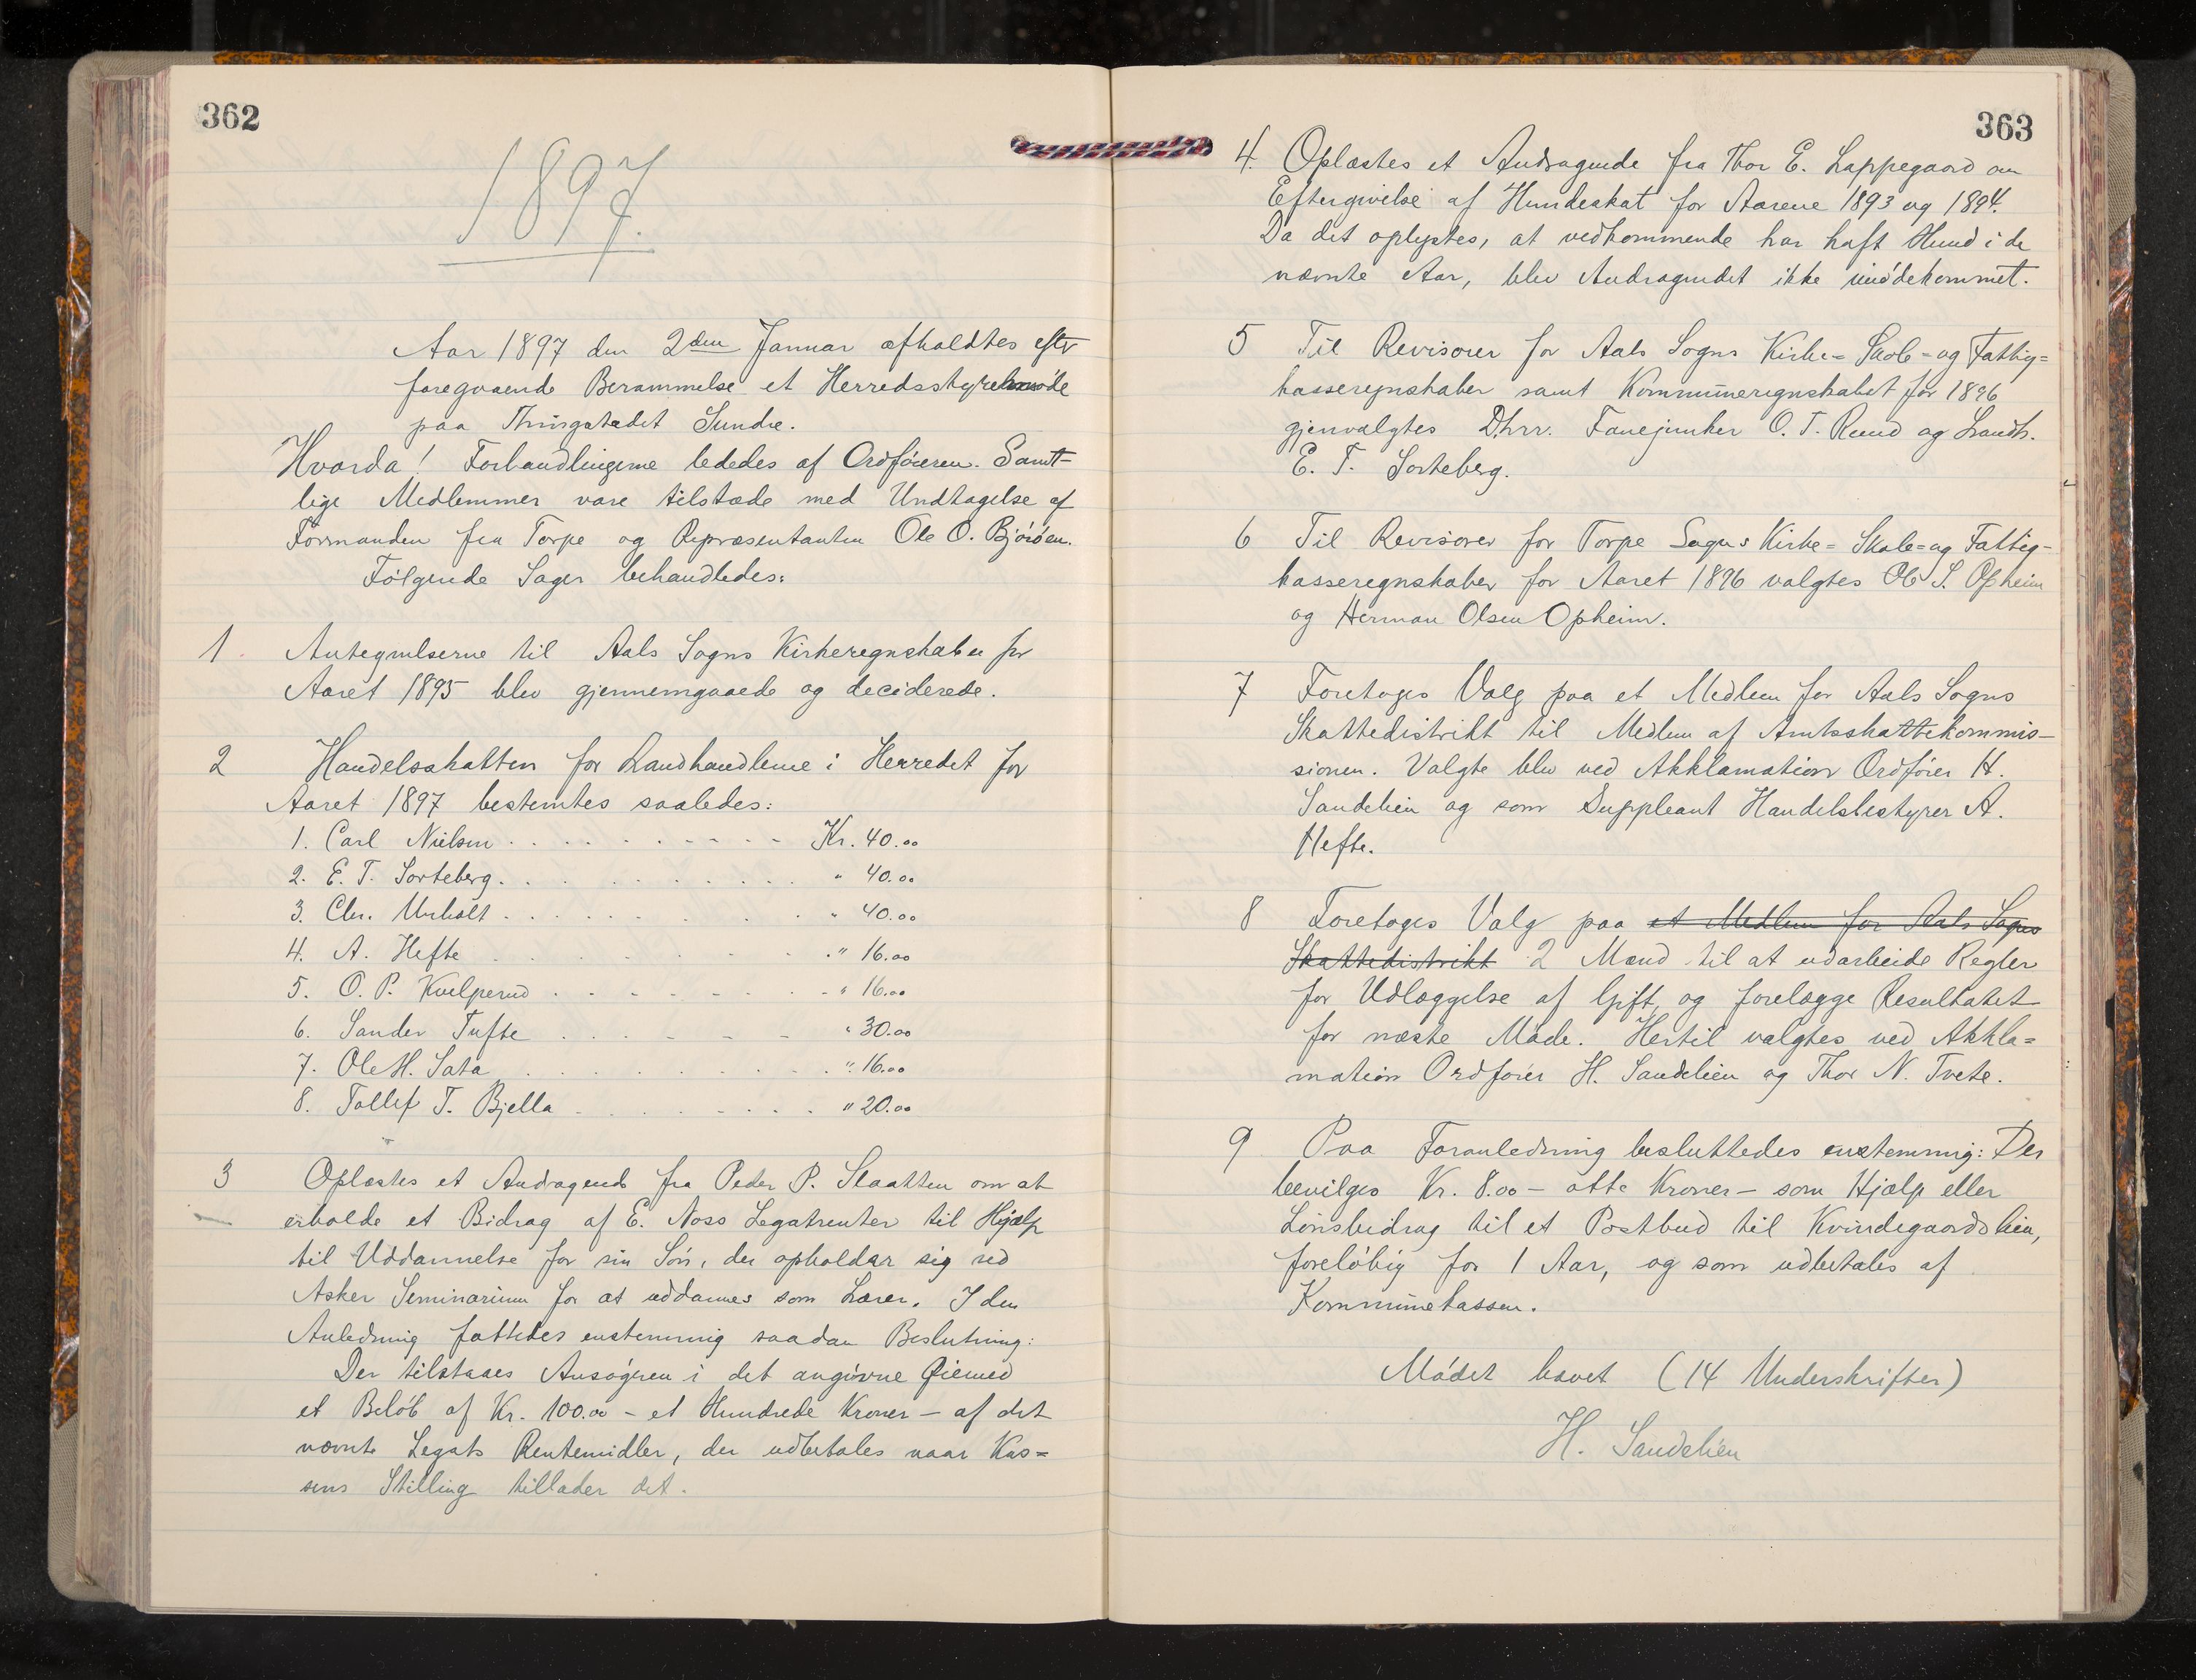 362
1897.
Aar 1897 den 2den Januar afholdtes efter
foregaaende Berammelse et Herredsstyremøde
paa Thingstedet Sundre.
Hvorda! Forhandlingerne lededes af Ordføreren. Samt-
lige Medlemmer vare tilstæde med Undtagelse af
Formanden fra Torpe og Repræsentanten Ole O. Bjøröen.
Følgende Sager behandledes:
1 Antegnelserne til Aals Sogns Kirkeregnskaber for
Aaret 1895 blev gjennemgaaede og deciderede.
2 Handelsskatten for Landhandlerne i Herredet for
Aaret 1897 bestemtes saaledes:
1. Carl Nielsen . . . . . . . . . . Kr. 40.00
2. E. T. Sorteberg . . . . . . . . . . " 40.00
3. Chr. Urholt . . . . . . . . . . " 40.00
4. A. Hefte . . . . . . . . . . " 16.00
5. O. P. Kvelprud . . . . . . . . . " 16.00
6. Sander Tufte . . . . . . " 30.00
7. Ole H. Sata . . . . . . . . . . " 16.00
8. Tollef T. Bjella . . . . . . . . " 20.00
3 Oplæstes et Andragende fra Peder P. Slaatten om at
erholde et Bidrag af E. Noss Legatrenter til Hjælp
til Uddannelse for sin Søn, der opholder sig ved
Asker Seminarium for at uddannes som Lærer. I den
Anledning fattedes enstemmig saadan Beslutning:
Der tilstaaes Ansøgeren i det angivne Øiemed
et Beløb af Kr. 100.00 – et Hundrede Kroner – af det
nævnte Legats Rentemidler, der udbetales naar Kas=
sens Stilling tillader det.
363
4. Oplæstes et Andragende fra Thor E. Lappegaard om
Eftergivelse af Hundeskat for Aarene 1893 og 1894.
Da det oplystes, at vedkommende har haft Hund i de
nævnte Aar, blev Andragendet ikke imødekommet.
5 Til Revisorer for Aals Sogns Kirke= Skole= og Fattig=
kasseregnskaber samt Kommuneregnskabet for 1896
gjenvalgtes Dhrr. Fanejunker O. T. Ruud og Landh.
E. T. Sorteberg.
6 Til Revisorer for Torpe Sogns Kirke= Skole= og Fattig-
kasseregnskaber for Aaret 1896 valgtes Ole S. Opheim
og Herman Olsen Opheim.
7 Foretoges Valg paa et Medlem for Aals Sogns
Skattedistrikt til Medlem af Amtsskattekommis-
sionen. Valgte blev ved Akklamation Ordfører H.
Sandelien og som Suppleant Handelsbestyrer A.
Hefte.
8 Foretoges Valg paa et Medlem for Aals Sogns
Skattedistrikt 2 Mænd til at udarbeide Regler
for Udlæggelse af Gift, og forelægge Resultatet
for næste Møde. Hertil valgtes ved Akkla=
mation Ordfører H. Sandelien og Thor N. Tvete.
9 Paa Foranledning besluttedes enstemmig: Der
bevilges Kr. 8.00 – otte Kroner – som Hjælp eller
Lønsbidrag til et Postbud til Kvindegaardslien,
foreløbig for 1 Aar, og som udbetales af
Kommunekassen.
Mødet hævet (14 Underskrifter)
H. Sandelien